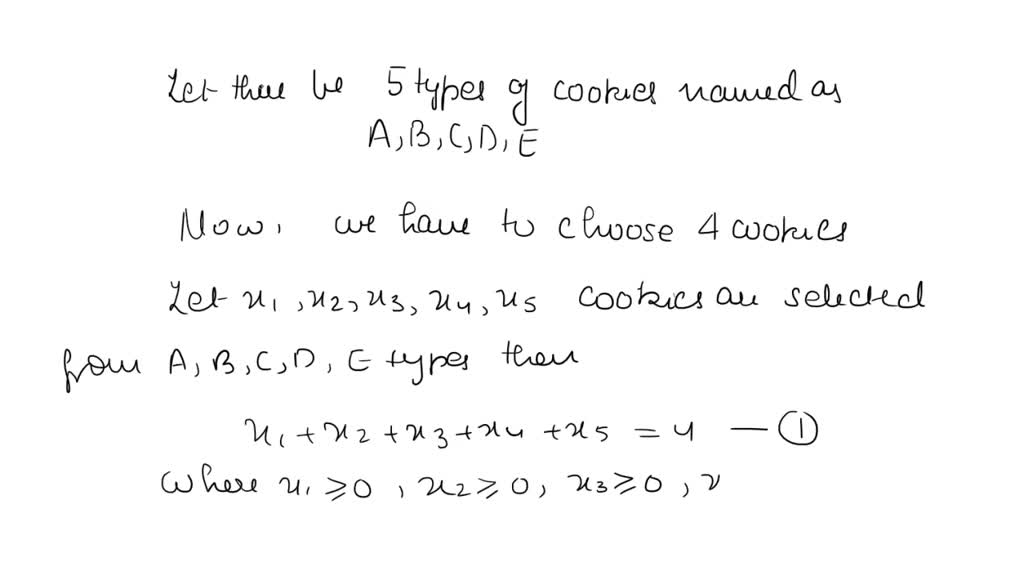 Let there be 5 types of cookies named as
A, B, C, D, E
Now, we have to choose 4 cookies
Let x1, x2, x3, x4, x5 cookies are selected
from A, B, C, D, E types then
x1 + x2 + x3 + x4 + x5 = 4 — ①
where x1 ≥ 0, x2 ≥ 0, x3 ≥ 0,